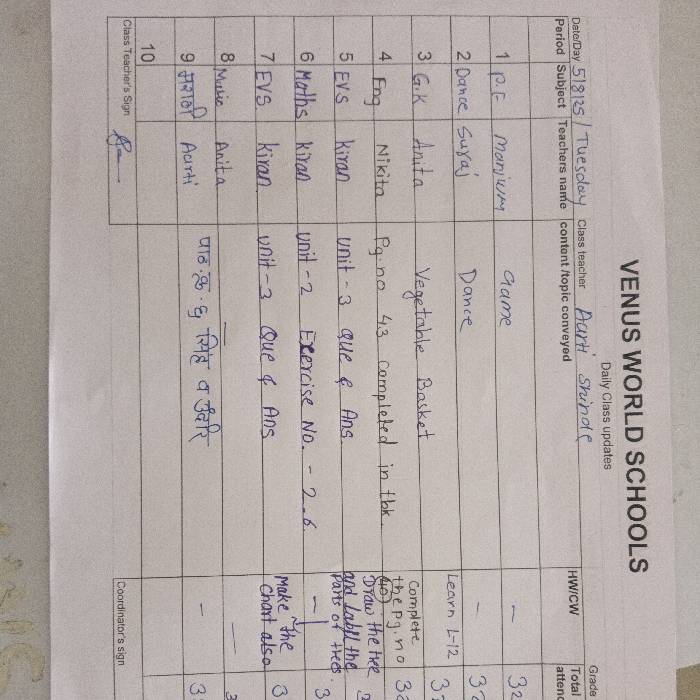 VENUS WORLD SCHOOLS
Daily Class updates
Grade
Date/Day 5/8/25 / Tuesday Class teacher Aarti Shinde
Period Subject Teachers name content /topic conveyed HW/CW Total atten
1 P.E Manjum Game — 32
2 Dance Suraj Dance — 32
3 G.K Anita Vegetable Basket Learn L-12 32
4 Eng Nikita Pg.no 43 completed in tbk. Complete the Pg.no 40 32
5 EVS Kiran Unit - 3 Que & Ans Draw the tree and Label the parts of trees. 3
6 Maths Kiran Unit - 2 Exercise No. - 2.6. — 3
7 EVS Kiran Unit - 3 Que & Ans Make the chart also 3
8 Music Anita — — 3
9 मराठी Aarti पाठ.क्र. ६ सिंह व उंदीर — 3
10
Class Teacher's Sign Coordinator's sign